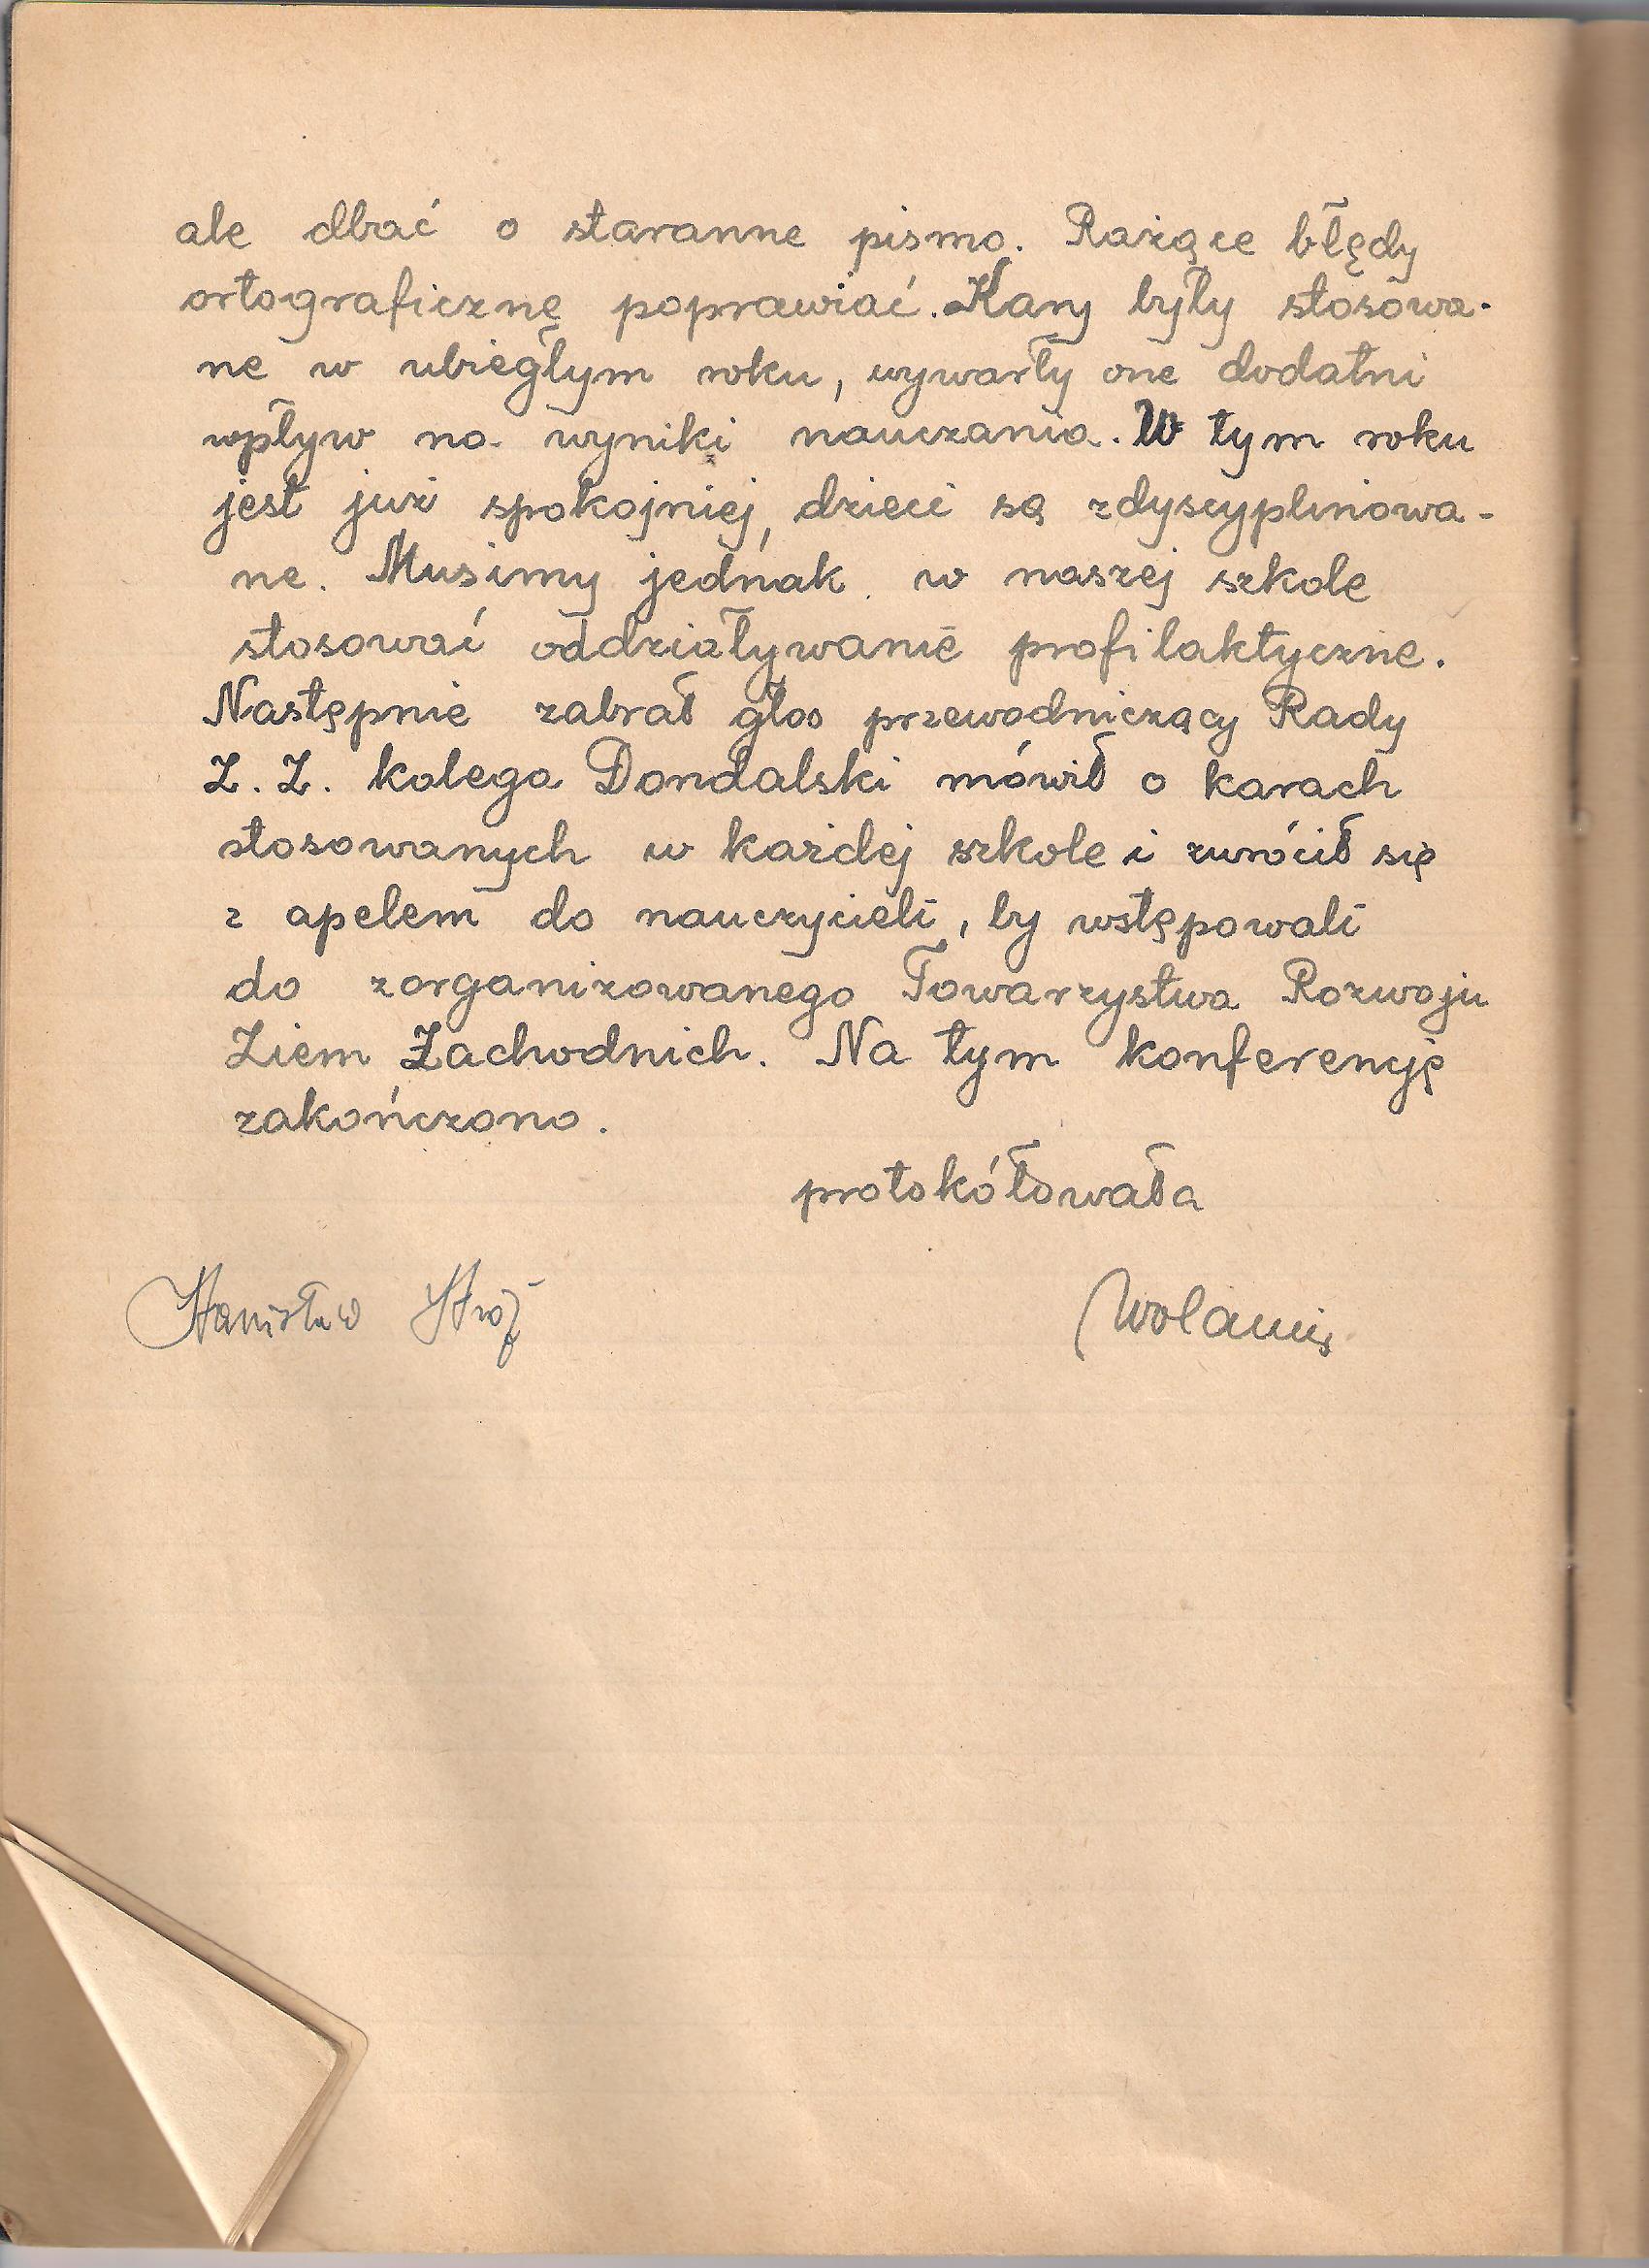 ale dbać o staranne pismo. Rażące błędy
ortograficznę poprawiać. Kary były stosowa-
ne w ubiegłym roku, wywarły one dodatni
wpływ na wyniki nauczania. W tym roku
jest już spokojniej, dzieci są zdyscyplinowa-
ne. Musimy jednak w naszej szkole
stosować oddziaływanie profilaktyczne.
Następnie zabrał głos przewodniczący Rady
Z. Z. kolega Dondalski mówił o karach
stosowanych w każdej szkole i zwrócił się
z apelem do nauczycieli, by wstępowali
do zorganizowanego Towarzystwa Rozwoju
Ziem Zachodnich. Na tym konferencję
zakończono.
protokółowała
Stanisław